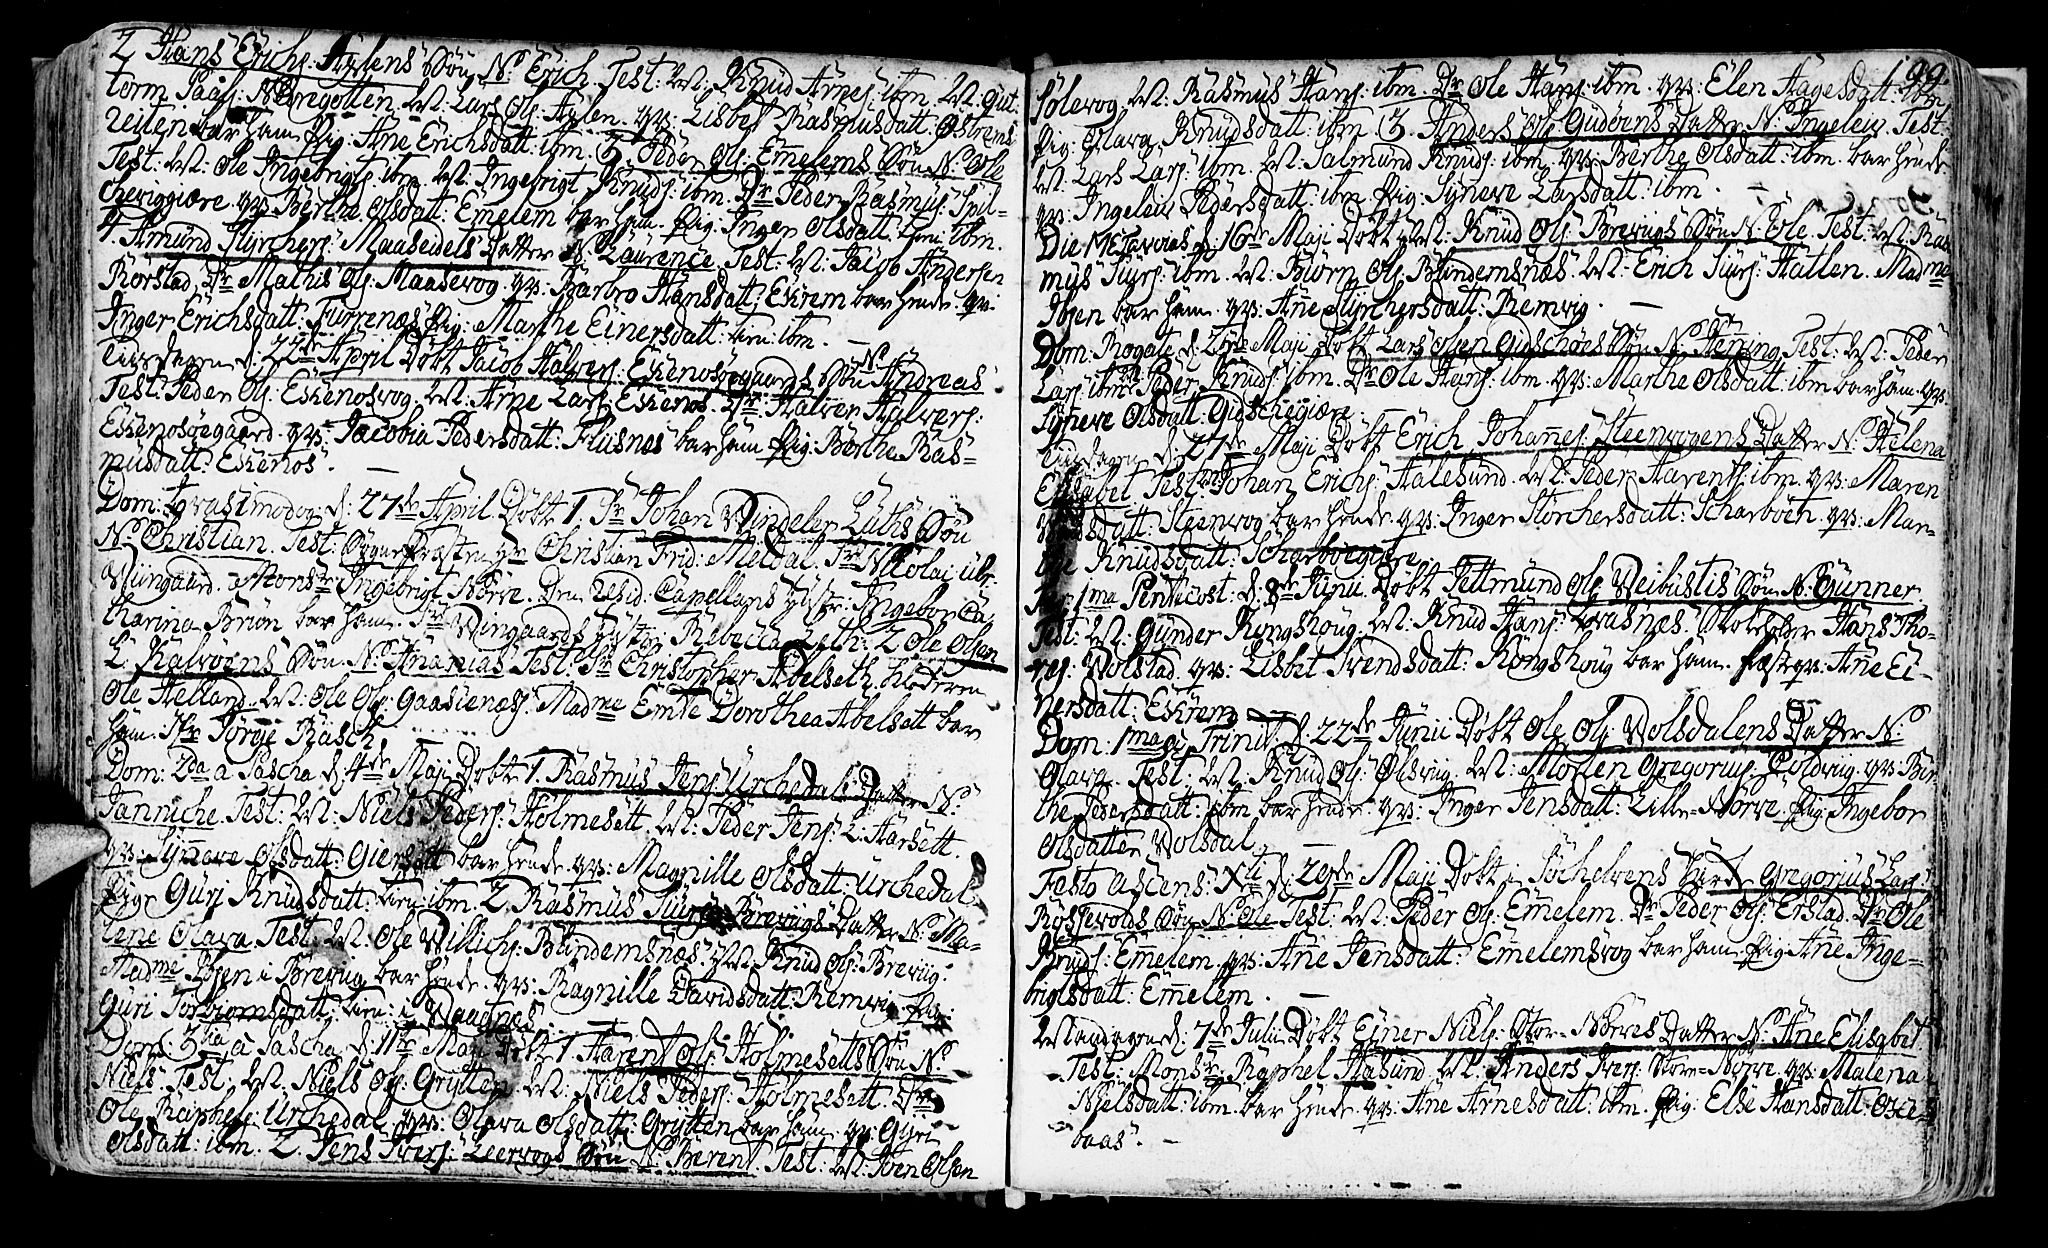 2 Hans Erichs: Hylens Søn N: Erich. Test: Wl: Knud Arnes: ibm. Wl: Gut-
torm Paals: Wl: Lars Ols: Hylen. qvs: Lisbet Rasmusdatt:
reiten bar ham. Pig: Ane Erichsdatt: ibm. 3. Peder Ols: Emelems Søn N: Ole
Test: Wl: Ole Ingebrigts: ibm. Wl: Ingebrigt Knuds: ibm. Dr: Peder Rasmus: Spil-
cheviggiære. qvs: Bærthe Olsdatt: Emelem bar ham. Pig: Inger Olsdatt: ibm.
4. Amund Stÿrchers: Maaseidets Datter N: Laurence. Test: Wl: Jacob Andersen
Rørstad. Dr: Mathis Ols: Maasevog. qvs: Barbro Hansdatt: Eskrem bar hende. qvs:
Inger Erichsdatt: Furrenæs. Pig: Marthe Einersdatt: ibm.
Tirsdagen d: 22de April Døbt Jacob Halvers: Eskenosøegaards Søn N: Andreas
Test: Peder Ols: Eskenosvog. Wl: Arne Lars: Eskenos. Dr: Halver Halvers:
Eskenosøegaard. qvs: Jacobia Pedersdatt: Flusnes bar ham. Pig: Børthe Ras-
musdatt: Eskenos.
Dom: Qvasimodog. d: 27de April. Døbt 1. Sr Johan Windeler Lüths Søn
N: Christian. Test: Hr Christian Frid: Meldal. Sr Nicolai
Wiingaard. Monsr Ingebrigt Nørve. Den resid. Capellans Ingebor Ca-
tharina Briøn bar ham. Sr Wingaards Rebecca Leth. 2 Ole Olsen
L: Kalvøens Søn N: Ananias Test: Sr Christopher Abelseth. Klocheren
Ole Helland. Wl: Ole Ols: Gaasenæs. Madme Emte Dorothea Abelsett bar
ham. Hr Jørgje Rasch
Dom: 2da a Pascha d: 4de Maji Døbt 1. Rasmus Jens: Urchedals Datter N:
Janniche. Test: Wl: Niels Peders: Holmesett. Wl: Peder Jens: L: Harsett.
qvs: Synneve Olsdatt: Giersett bar hende. qvs: Magnille Olsdatt: Urchedal.
Pige Guri Knudsdatt: ibm. 2. Rasmus Siurs: Brevigs Datter N: Ma-
lene Olava. Test: Wl: Ole Willichs: Blindemsnæs. Wl: Knud Ols: Brevig.
Madme Ibsen i Brevig bar hende. qvs: Ragnille Davidsdatt: Remvig. Pig:
Guri Torbiørnsdatt: i Vaagnæs.
Dom: 3tia a Pascha. d: 11te Maji Døbt 1. Harent Ols: Holmesetts Søn N:
Niels. Test: Wl: Niels Ols: Grytten. Wl: Niels Peders: Holmesett. Dr
Ole Raphels: Urchedal. qvs: Olava Olsdatt: Grytten bar ham. qvs: Gyri
Olsdatt: ibm. 2. Jens Ivers: Leervogs Søn N: Berent. Test: Wl: Iven Olsen
199.
Sølevog. Wl: Rasmus Hans: ibm. Dr Ole Hans: ibm. qvs: Elen Hagesdatt: ibm.
Pig: Olava Knudsdatt: ibm. 3 Anders Ols: Gudøens Datter N: Ingelev. Test:
Wl: Lars Lars: ibm. Wl: Salmund Knuds: ibm. qvs: Berthe Olsdatt: ibm. bar hende.
qvs: Ingelev Pedersdatt: ibm. Pig: Syneve Larsdatt: ibm.
Die d: 16de Maji Døbt Knud Ols: Brevigs Søn N: Ole. Test: Wl: Ras-
mus Siurs: ibm. Wl: Biørn Ols: Blindemsnæs. Wl: Erich Siurs: Hatlen. Madme
Ibsen bar ham. qvs: Ane Styrchersdatt: Remvig.
Dom: Rogate d: Maji Døbt Lars Olsen Gidschøes Søn N: Hening. Test: Wl: Peder
Lars: ibm. Peder Knuds: ibm. Dr Ole Hans: ibm. qvs: Marthe Olsdatt: ibm bar ham. qvs:
Syneve Olsdatt: Gidschegiære.
Tirsdagen d: 27de Maji Døbt Erich Johannes: Steenvogens Datter N: Helena
Elisabet. Test: Johan Erichs: Aalesund. Wl: Peder Harents: ibm. qvs: Maren
datt: Steenvog bar hende. qvs: Inger Storchersdatt: Scharbøen. qvs: Mar-
the Knudsdatt: Scharbøegiære.
1ma Pentecost: d: 8de Junii Døbt Tettmund Ols: Veibustis Søn N: Gunner.
Test: Wl: Gunder Rongshoug. Wl: Knud Hans: Qvasnæs. Skoleholder Hans Tho-
res: Volstad. qvs: Lisbet Svendsdatt: Rongshoug bar ham. qvs: Ane Ei-
nersdatt: Eskrem
Dom: 1ma a Trinit: d: 22de Junii Døbt Ole Ols: Volsdalens Datter N:
Olava. Test: Wl: Knud Ols: Wl: Morten Gregorius: qvs: Ber-
the Pedersdatt: ibm bar hende. qvs: Inger Jensdatt: Lille-Nørve. Pig: Ingebor
Olsdatter Volsdal.
Festo Ascens: Xti d: 29de Maji Døbt i Søchelvens Gregorius Lars:
Røssevolds Søn N: Ole. Test: Wl: Peder Ols: Emelem. Dr: Peder Ols: Erstad. Dr: Ole
Knuds: Emelem. qvs: Ane Jensdatt: Emelemsvog bar ham. Pig: Ane Inge-
brigtsdatt: Emelem.
Mandagen d: 7de Julii Døbt Einer Niels: Stor-Nørves Datter N: Ane Elisabet.
Test: Monsr: Raphel Aasund. Wl: Anders Ivers: Store-Nørve. qvs: Malena
Nielsdatt: ibm. bar hende. qvs: Ane Arnesdatt: ibm. Pig: Else Hansdatt:
baas.